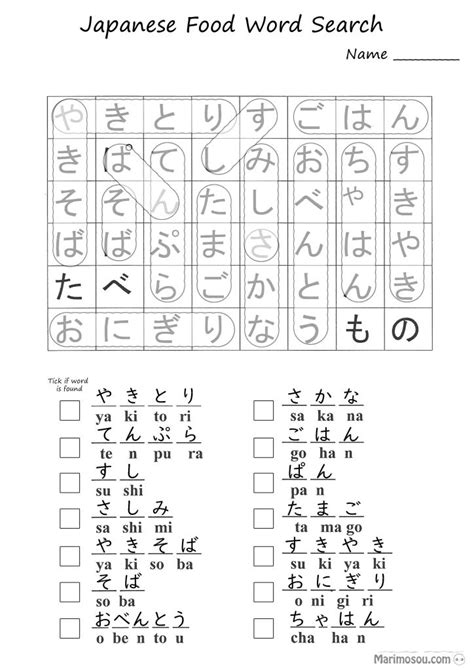 Japanese Food Word Search
Name
や き と り す ご は ん
き ぱ て し み お ち す
そ そ ん た し べ ゃ き
ば ば ぷ ま さ ん は や
た べ ら ご か と ん き
お に ぎ り な う も の
Tick if word
is found
や き と り
ya ki to ri
て ん ぷ ら
te n pu ra
す し
su shi
さ し み
sa shi mi
や き そ ば
ya ki so ba
そ ば
so ba
お べ ん と う
o be n to u
さ か な
sa ka na
ご は ん
go ha n
ぱ ん
pa n
た ま ご
ta ma go
す き や き
su ki ya ki
お に ぎ り
o ni gi ri
ち ゃ は ん
cha ha n
Marimosou.com